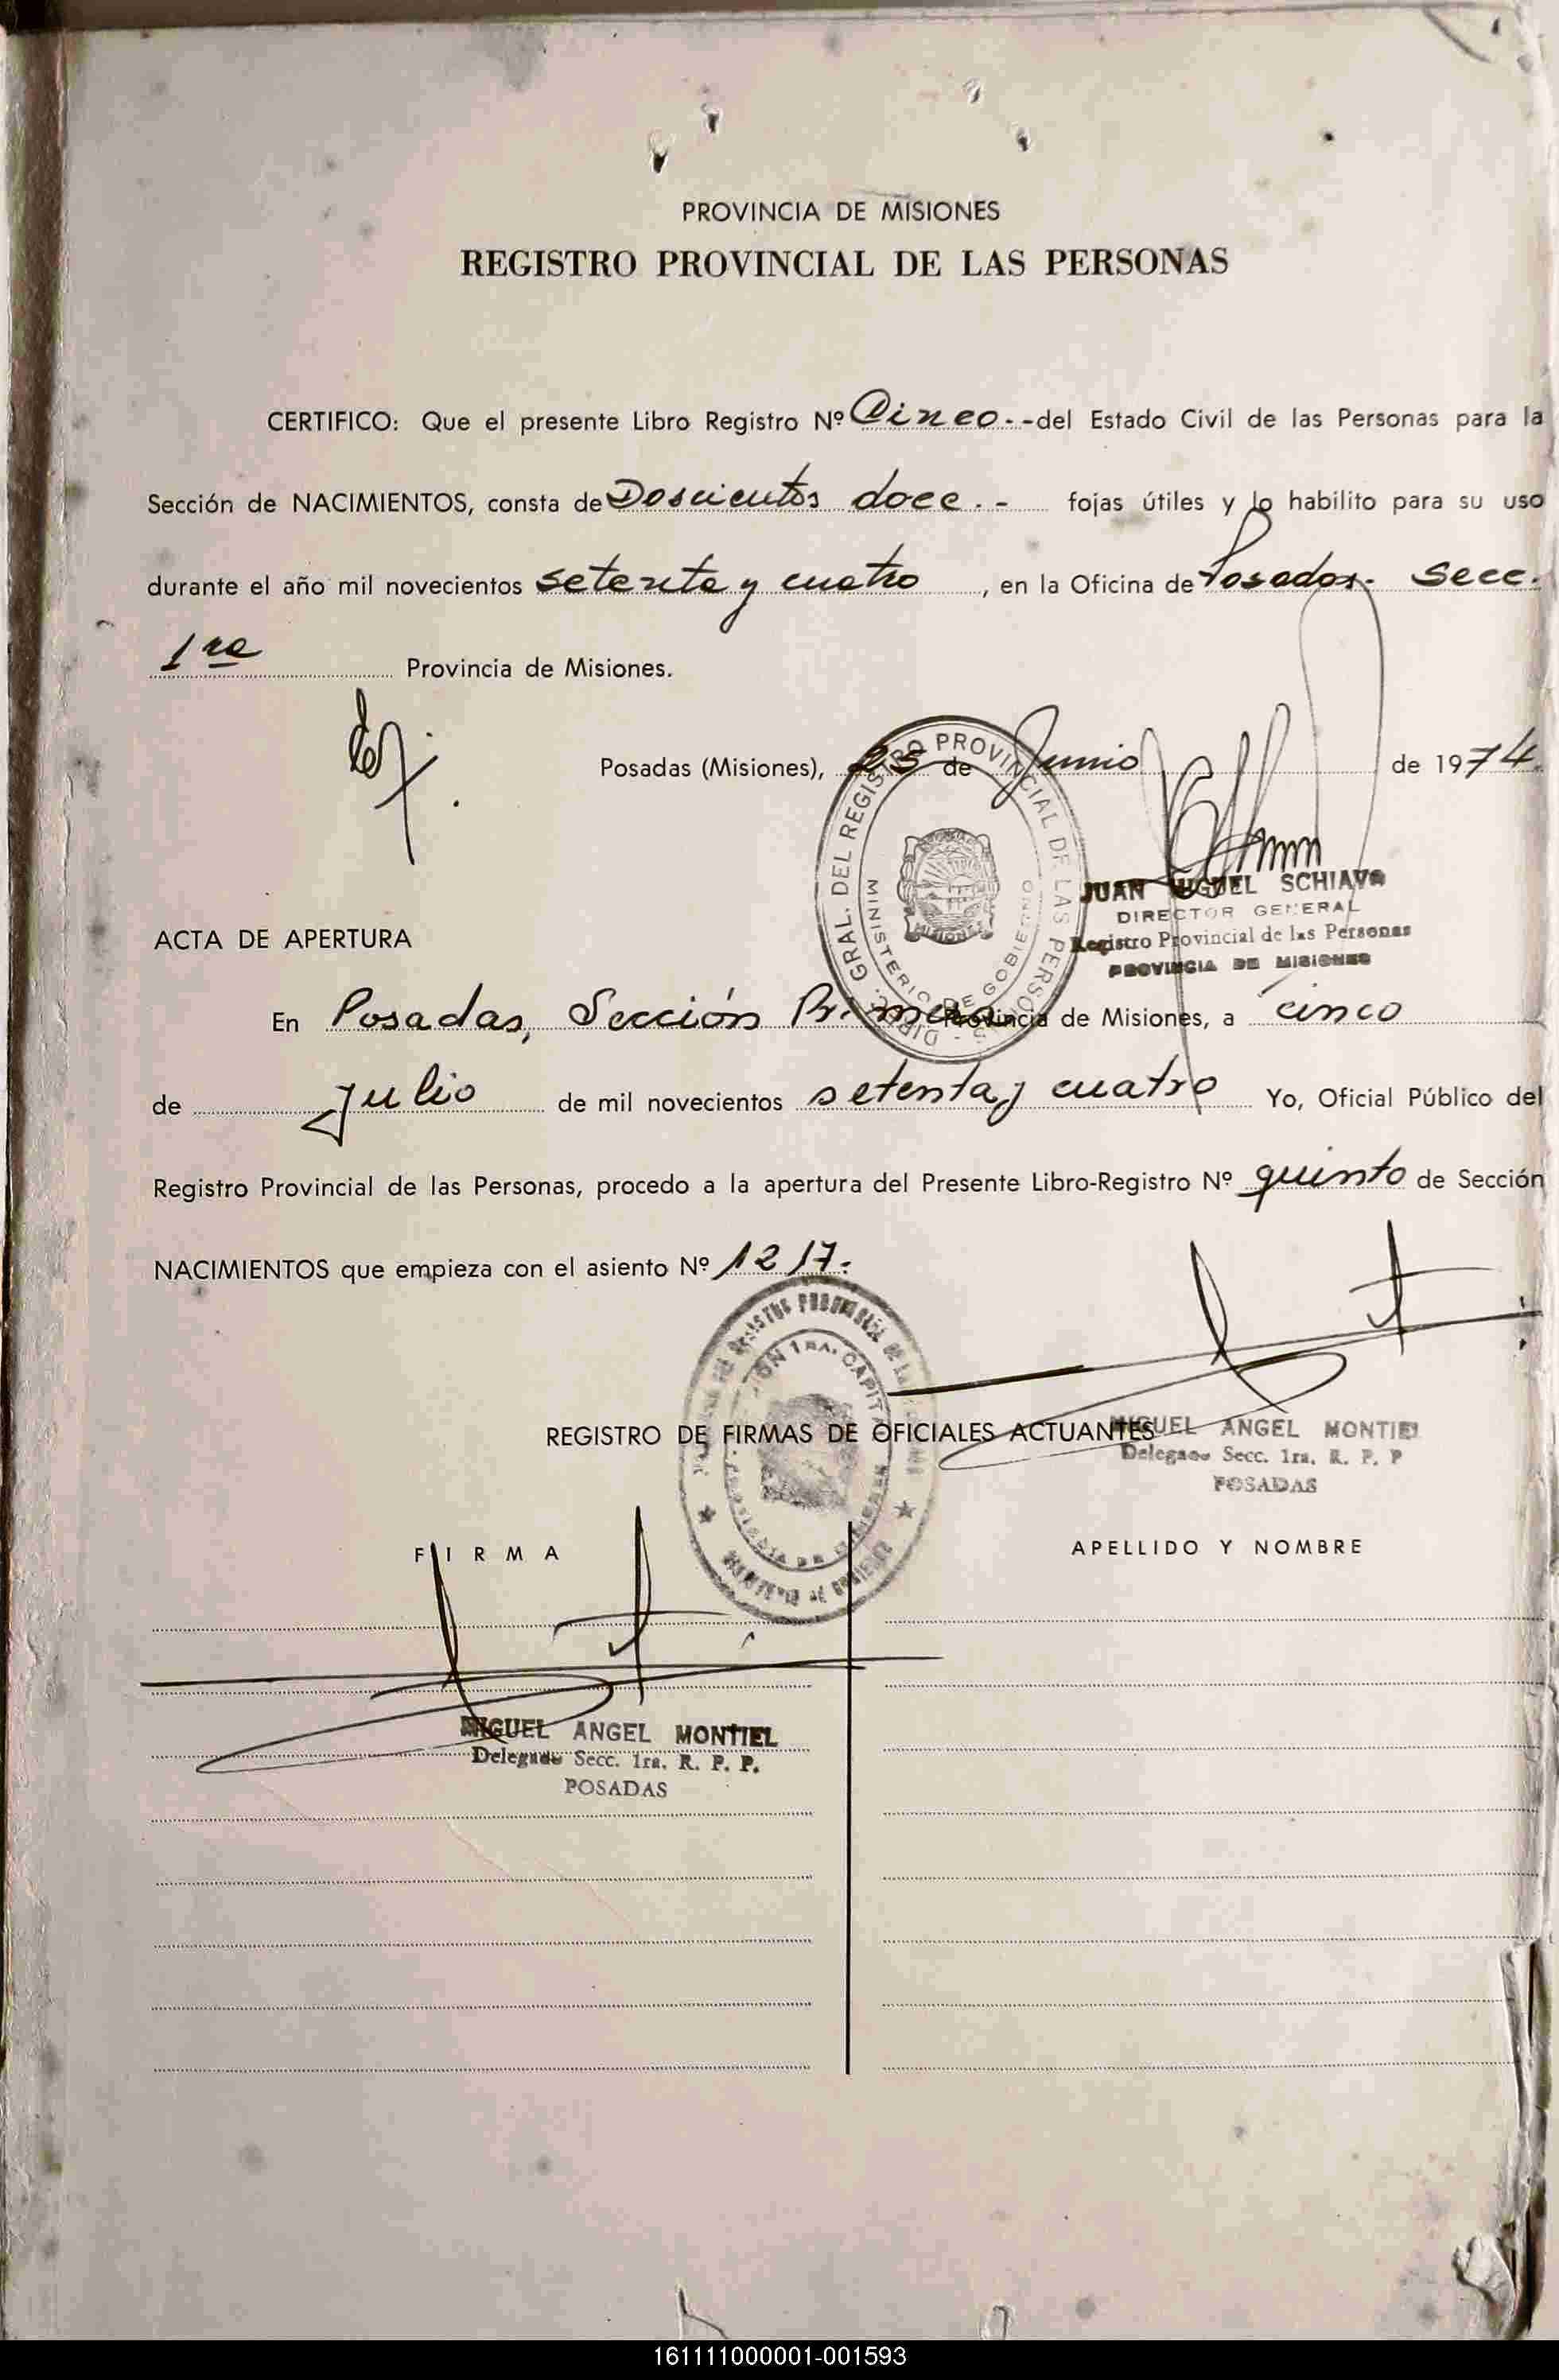 PROVINCIA DE MISIONES
REGISTRO PROVINCIAL DE LAS PERSONAS
CERTIFICO: Que el presente Libro Registro Nº Cinco.- -del Estado Civil de las Personas para la
Sección de NACIMIENTOS, consta de Doscientos doce.- fojas útiles y lo habilito para su uso
durante el año mil novecientos setenta y cuatro, en la Oficina de Posadas- Secc.
1ra Provincia de Misiones.
Posadas (Misiones), 25 de Junio de 1974.
DIREC. GRAL. DEL REGISTRO PROVINCIAL DE LAS PERSONAS
MINISTERIO DE GOBIERNO
MISIONES
JUAN MIGUEL SCHIAVO
DIRECTOR GENERAL
Registro Provincial de las Personas
PROVINCIA DE MISIONES
ACTA DE APERTURA
En Posadas, Sección Primera Provincia de Misiones, a cinco
de Julio de mil novecientos setenta y cuatro Yo, Oficial Público del
Registro Provincial de las Personas, procedo a la apertura del Presente Libro-Registro Nº quinto de Sección
NACIMIENTOS que empieza con el asiento Nº 1217.
REGISTRO DE FIRMAS DE OFICIALES ACTUANTES
MIGUEL ANGEL MONTIEL
Delegado Secc. 1ra. R. P. P
POSADAS
FIRMA
APELLIDO Y NOMBRE
MIGUEL ANGEL MONTIEL
Delegado Secc. 1ra. R. P. P.
POSADAS
161111000001-001593